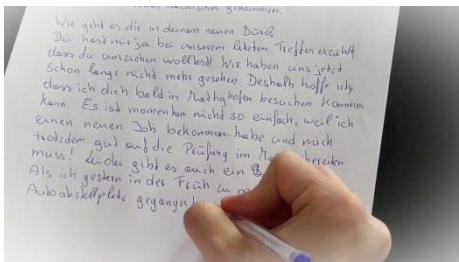 gekommen.
Wie geht es dir in deinem neuen Büro?
Du hast mir ja bei unserem letzten Treffen erzählt,
dass du umziehen wolltest! Wir haben uns jetzt
schon lange nicht mehr gesehen. Deshalb hoffe ich,
dass ich dich bald in Mattighofen besuchen kommen
kann. Es ist momentan nicht so einfach, weil ich
einen neuen Job bekommen habe und mich
trotzdem gut auf die Prüfung im vorbereiten
muss! Leider gibt es auch ein
Als ich gestern in der Früh zu m
Autoabstellplatz gegangen